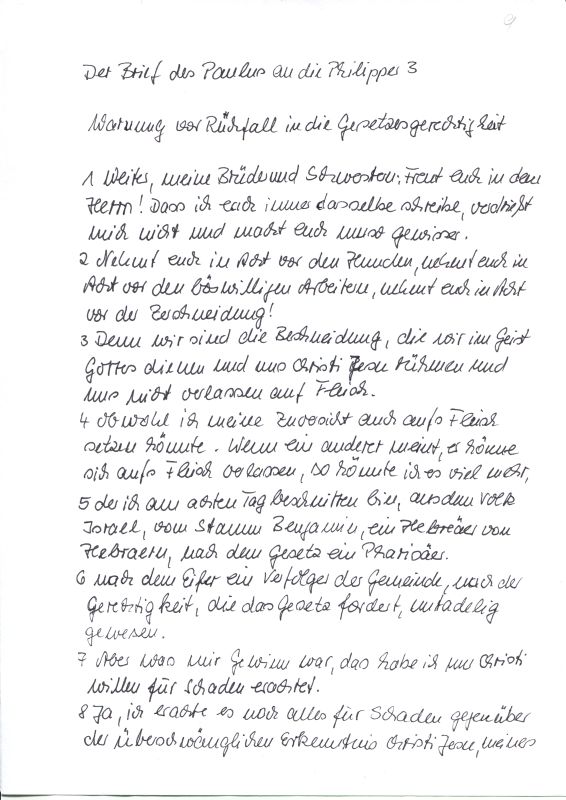 Der Brief des Paulus an die Philipper 3
Warnung vor Rückfall in die Gesetzesgerechtigkeit
1 Weiter, meine Brüder und Schwestern: Freut euch in dem
Herrn! Dass ich euch immer dasselbe schreibe, verdrießt
mich nicht und macht euch umso gewisser.
2 Nehmt euch in Acht vor den Hunden, nehmt euch in
Acht vor den böswilligen Arbeitern, nehmt euch in Acht
vor der Zerschneidung!
3 Denn wir sind die Beschneidung, die wir im Geist
Gottes dienen und uns Christi Jesu rühmen und
uns nicht verlassen auf Fleisch.
4 Obwohl ich meine Zuversicht auch aufs Fleisch
setzen könnte. Wenn ein anderer meint, er könne
sich aufs Fleisch verlassen, so könnte ich es viel mehr,
5 der ich am achten Tag beschnitten bin, aus dem Volk
Israel, vom Stamm Benjamin, ein Hebräer von
Hebräern, nach dem Gesetz ein Pharisäer.
6 nach dem Eifer ein Verfolger der Gemeinde, nach der
Gerechtigkeit, die das Gesetz fordert, untadelig
gewesen.
7 Aber was mir Gewinn war, das habe ich um Christi
willen für Schaden erachtet.
8 Ja, ich erachte es noch alles für Schaden gegenüber
der überschwänglichen Erkenntnis Christi Jesu, meines